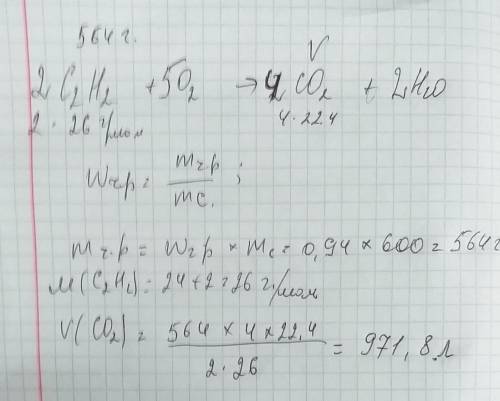 564 г.
V
2C₂H₂ + 5O₂ → 4CO₂ + 2H₂O
2 · 26 г/моль 4 · 22.4
Wч.р = mч.р / mс. ;
mч.р = Wч.р × mс = 0,94 × 600 = 564 г
M(C₂H₂) = 24 + 2 = 26 г/моль
V(CO₂) = 564 × 4 × 22,4 / 2 · 26 = 971,8 л